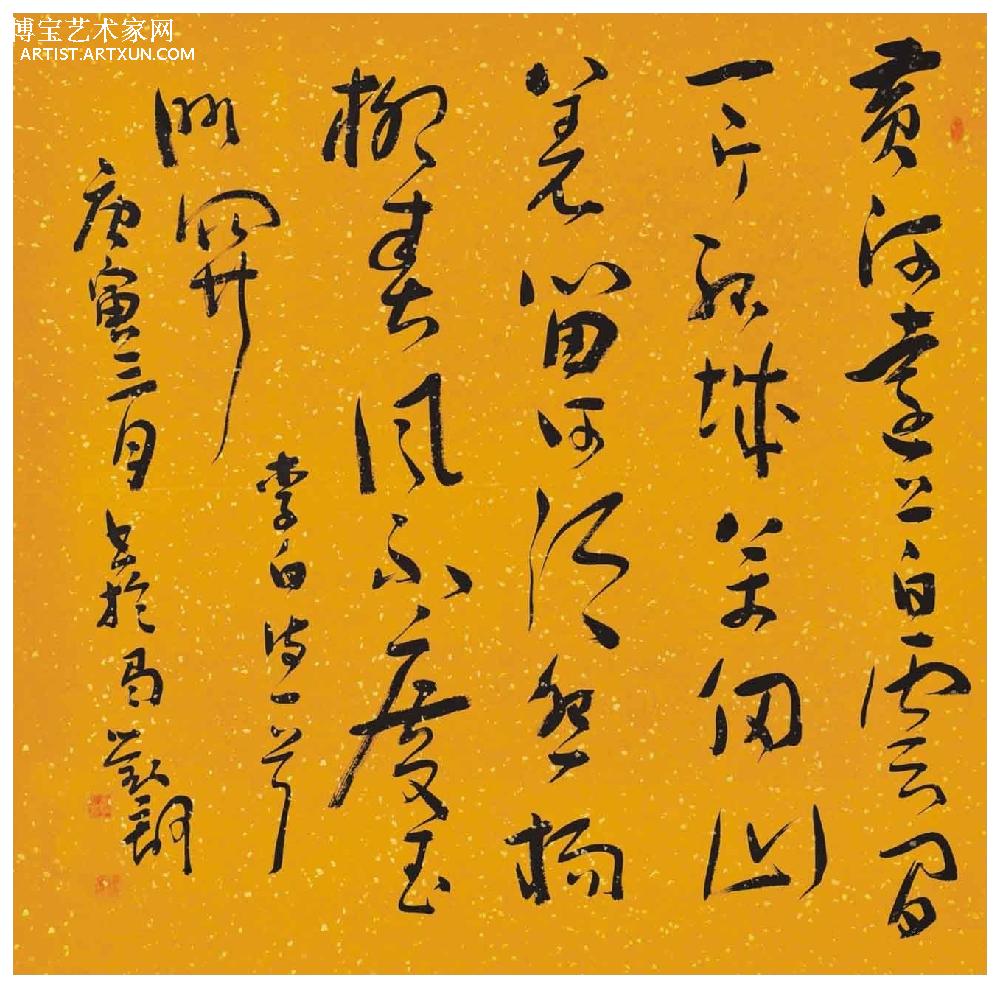 博宝艺术家网
ARTIST.ARTXUN.COM
黄河遠上白雲間
一片孤城萬仞山
羌笛何須怨楊
柳春風不度玉
門關
李白诗一首
庚寅三月書於